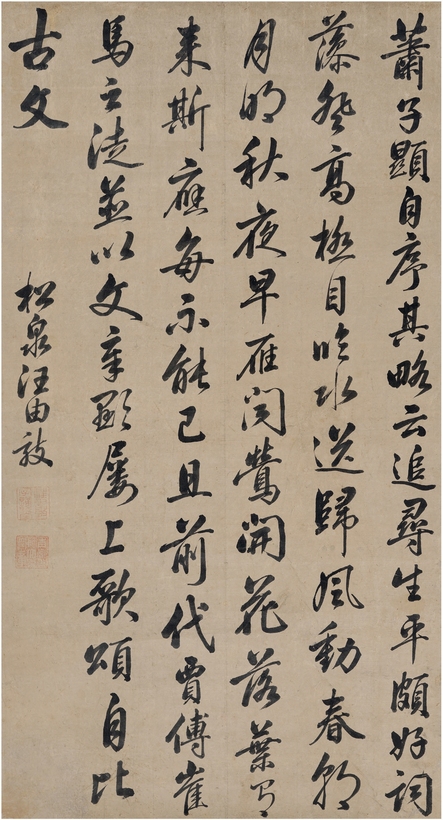 蕭子顯自序其略云追尋生平頗好詞
藻登高極目臨水送歸風動春朝
月明秋夜早雁聞鶯開花落葉有
来斯應每不能已且前代賈傅崔
馬之徒並以文章顯屢上歌頌自比
古文
松泉汪由敦